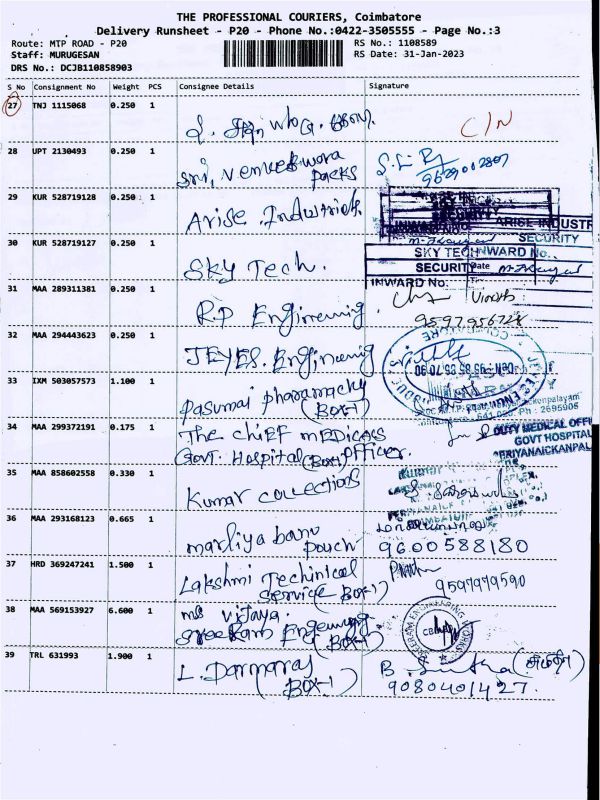 THE PROFESSIONAL COURIERS, Coimbatore
Delivery Runsheet - P20 - Phone No.:0422-3505555 - Page No.:3
Route: MTP ROAD - P20 RS No.: 1108589
Staff: MURUGESAN RS Date: 31-Jan-2023
DRS No.: DCJB110858903
S No Consignment No Weight PCS Consignee Details Signature
27 TNJ 1115068 0.250 1
C/N
28 UPT 2130493 0.250 1 Sri, Venkeswora
Packs
9629002807
29 KUR 528719128 0.250 1 Arise Industries
SECURITY
ARISE INDUSTR
30 KUR 528719127 0.250 1 Sky Tech.
SECURITY
SKY TECH INWARD No.
SECURITY Date
INWARD No.
31 MAA 289311381 0.250 1 R.P Engineering
Vinoth
9597956728
32 MAA 294443623 0.250 1 JEYES. Engineering
33 IXM 503057573 1.100 1 Pasumai Pharamachy
(BOX-1)
Ph : 2695906
34 MAA 299372191 0.175 1 The chief medical
Govt. Hospital (Box-1) officer.
DUTY MEDICAL OFFI
GOVT HOSPITAL
PERIYANAICKANPAL
35 MAA 858602558 0.330 1 Kumar collections
36 MAA 293168123 0.665 1 marliya banu
pouch
9600588180
37 HRD 369247241 1.500 1 Lakshmi Techinical
Service (Box-1)
9597979590
38 MAA 569153927 6.600 1 ms vijaya.
Sreeram Engeneering
(BOX-1)
39 TRL 631993 1.900 1 L. Darmaraj
(BOX-1)
9080401427.